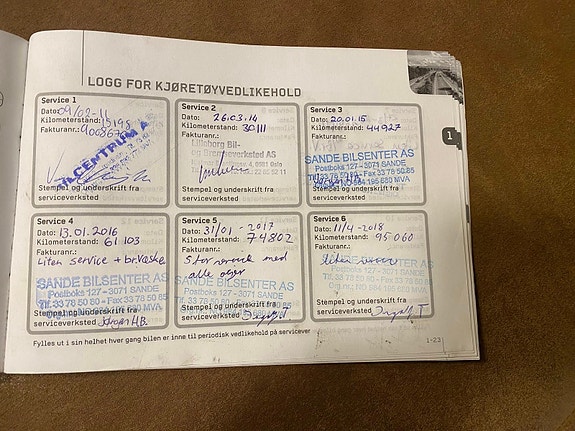 LOGG FOR KJØRETØYVEDLIKEHOLD
Service 1
Dato: 09/02-11
Kilometerstand: 15198
Fakturanr.:
CENTRUM A
Stempel og underskrift fra
serviceverksted
Service 2
Dato: 26.03.14
Kilometerstand: 30111
Fakturanr.:
Bil-
og Gummiverksted AS
4, 0661 Oslo
Stempel og underskrift fra
serviceverksted
Service 3
Dato: 20.01.15
Kilometerstand: 44927
Fakturanr.:
SANDE BILSENTER AS
Postboks 127 - 3071 SANDE
Tlf. 33 78 50 80 - Fax 33 78 50 85
Org.nr. NO 984 195 650 MVA
Stempel og underskrift fra
serviceverksted
Service 4
Dato: 13.01.2016
Kilometerstand: 61103
Fakturanr.:
Liten service + br.væske
SANDE BILSENTER AS
Postboks 127 - 3071 SANDE
Tlf. 33 78 50 80 - Fax 33 78 50 85
Stempel og underskrift fra
serviceverksted
Service 5
Dato: 31/01 - 2017
Kilometerstand: 74802
Fakturanr.:
Stor service med
alle oljer
SANDE BILSENTER AS
Postboks 127 - 3071 SANDE
Tlf. 33 78 50 80 - Fax 33 78 50 85
Stempel og underskrift fra
serviceverksted
Service 6
Dato: 11/4 - 2018
Kilometerstand: 95060
Fakturanr.:
liten service
SANDE BILSENTER AS
Postboks 127 - 3071 SANDE
Tlf. 33 78 50 80 - Fax 33 78 50 85
Stempel og underskrift fra
serviceverksted
Fylles ut i sin helhet hver gang bilen er inne til periodisk vedlikehold på servicever
1-23
1